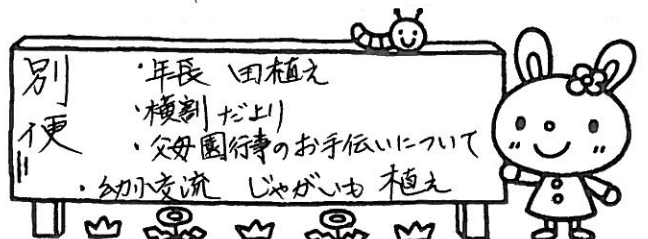 別便
・年長 田植え
・横割だより
・父母園行事のお手伝いについて
・幼小交流 じゃがいも 植え